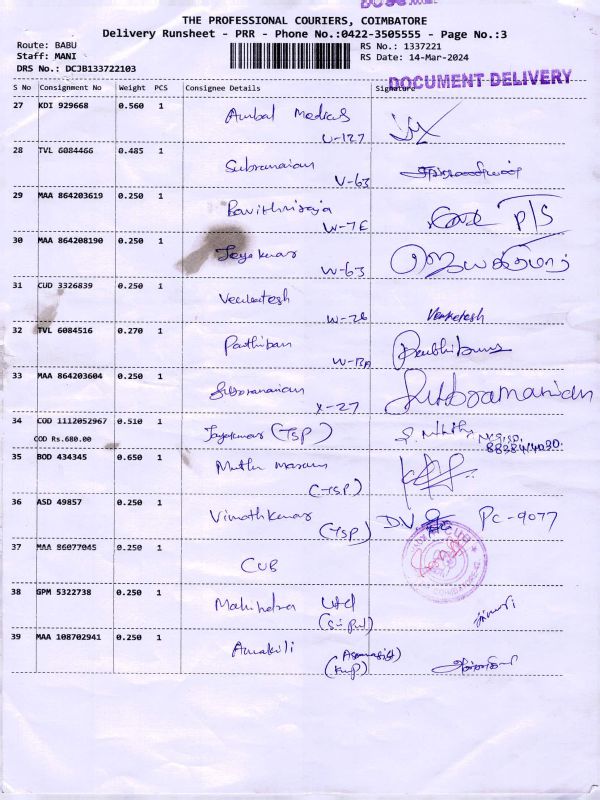 THE PROFESSIONAL COURIERS, COIMBATORE
Delivery Runsheet - PRR - Phone No.:0422-3505555 - Page No.:3
Route: BABU
Staff: MANI
DRS No.: DCJB133722103
RS No.: 1337221
RS Date: 14-Mar-2024
DOCUMENT DELIVERY
S No Consignment No Weight PCS Consignee Details Signature
27 KDI 929668 0.560 1 Ambal Medicals
U-127
28 TVL 6084466 0.485 1 Subramanian
V-63
29 MAA 864203619 0.250 1 Pavithniraja
W-7E P/S
30 MAA 864208190 0.250 1 Jayakumar ஜெயக்குமார்
W-63
31 CUD 3326839 0.250 1 Venkatesh
W-26 Venkatesh
32 TVL 6084516 0.270 1 Parthiban
W-13A Parthiban
33 MAA 864203604 0.250 1 Subramanian Subramanian
X-27
34 COD 1112052967 0.510 1 Jayakumar (TSP)
COD Rs.680.00 8838444030.
35 BOD 434345 0.650 1 Muthu
(TSP)
36 ASD 49857 0.250 1 Vinothkumar DV PC-9077
(TSP)
37 MAA 86077045 0.250 1 CUB
38 GPM 5322738 0.250 1 Mahindra Ltd
39 MAA 108702941 0.250 1